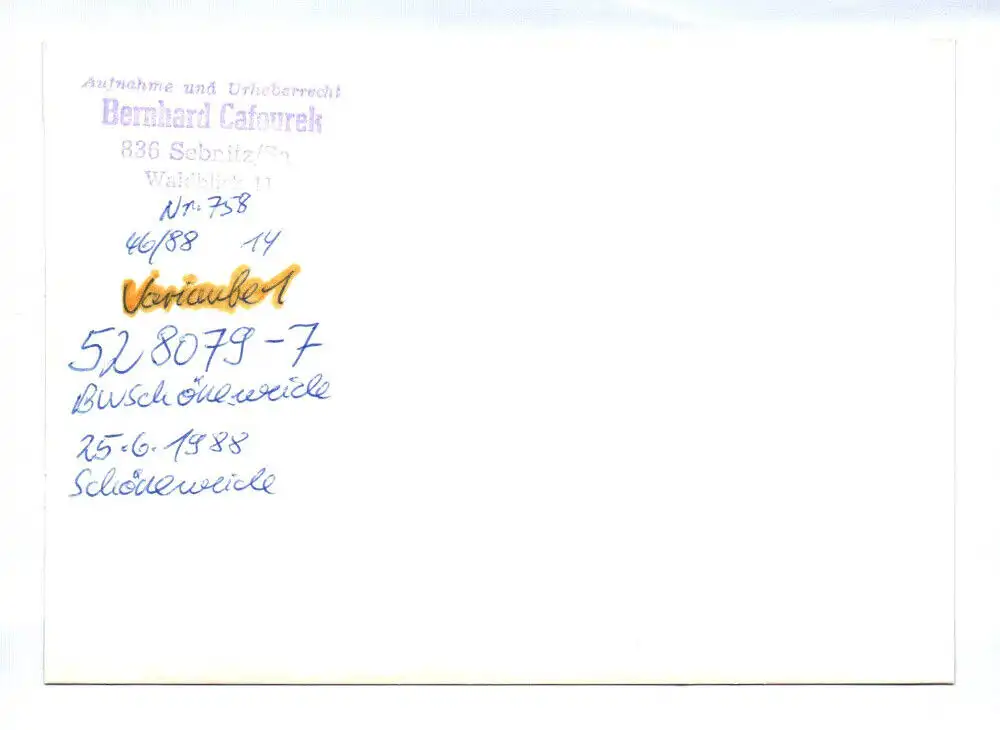 Aufnahme und Urheberrecht
Bernhard Cafourek
836 Sebnitz/Sa.
Waldblick 11
Nr. 758
46/88 14
Variante 1
52 8079-7
BW Schöneweide
25.6.1988
Schöneweide